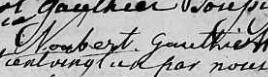 Gauthier
Norbert Gauthier
cent vingt un par nous